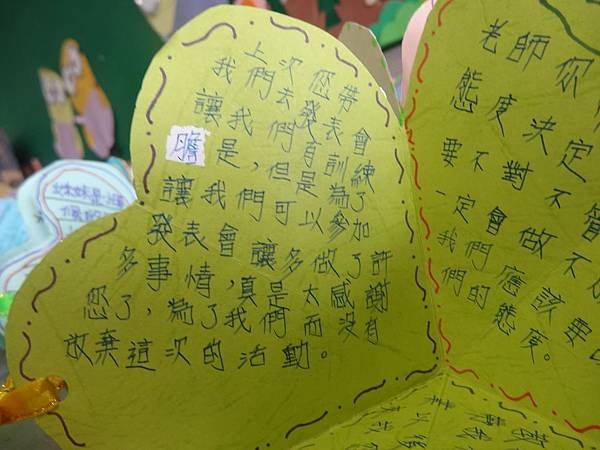 上次您帶
我們去發表會
讓我們有訓練
膽是,但是為了
讓我們可以參加
發表會讓多做了許
多事情,真是太感謝
您了,為了我們而沒有
放棄這次的活動。
老師你
態度決定
要不對不管
一定會做不
我們應該要
們的態度。